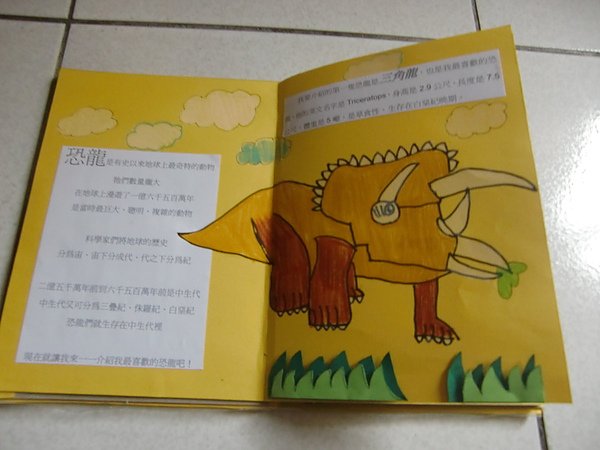 恐龍是有史以來地球上最奇特的動物
牠們數量龐大
在地球上漫遊了一億六千五百萬年
是當時最巨大、聰明、複雜的動物
科學家們將地球的歷史
分為宙、宙下分成代、代之下分為紀
二億五千萬年前到六千五百萬年前是中生代
中生代又可分為三疊紀、侏羅紀、白堊紀
恐龍們就生存在中生代裡
現在就讓我來一一介紹我最喜歡的恐龍吧！
我要介紹的第一隻恐龍是三角龍，也是我最喜歡的恐
龍，他的英文名字是 Triceratops，身高是 2.9 公尺，長度是 7.9
公尺，體重是 5 噸，是草食性，生存在白堊紀晚期。